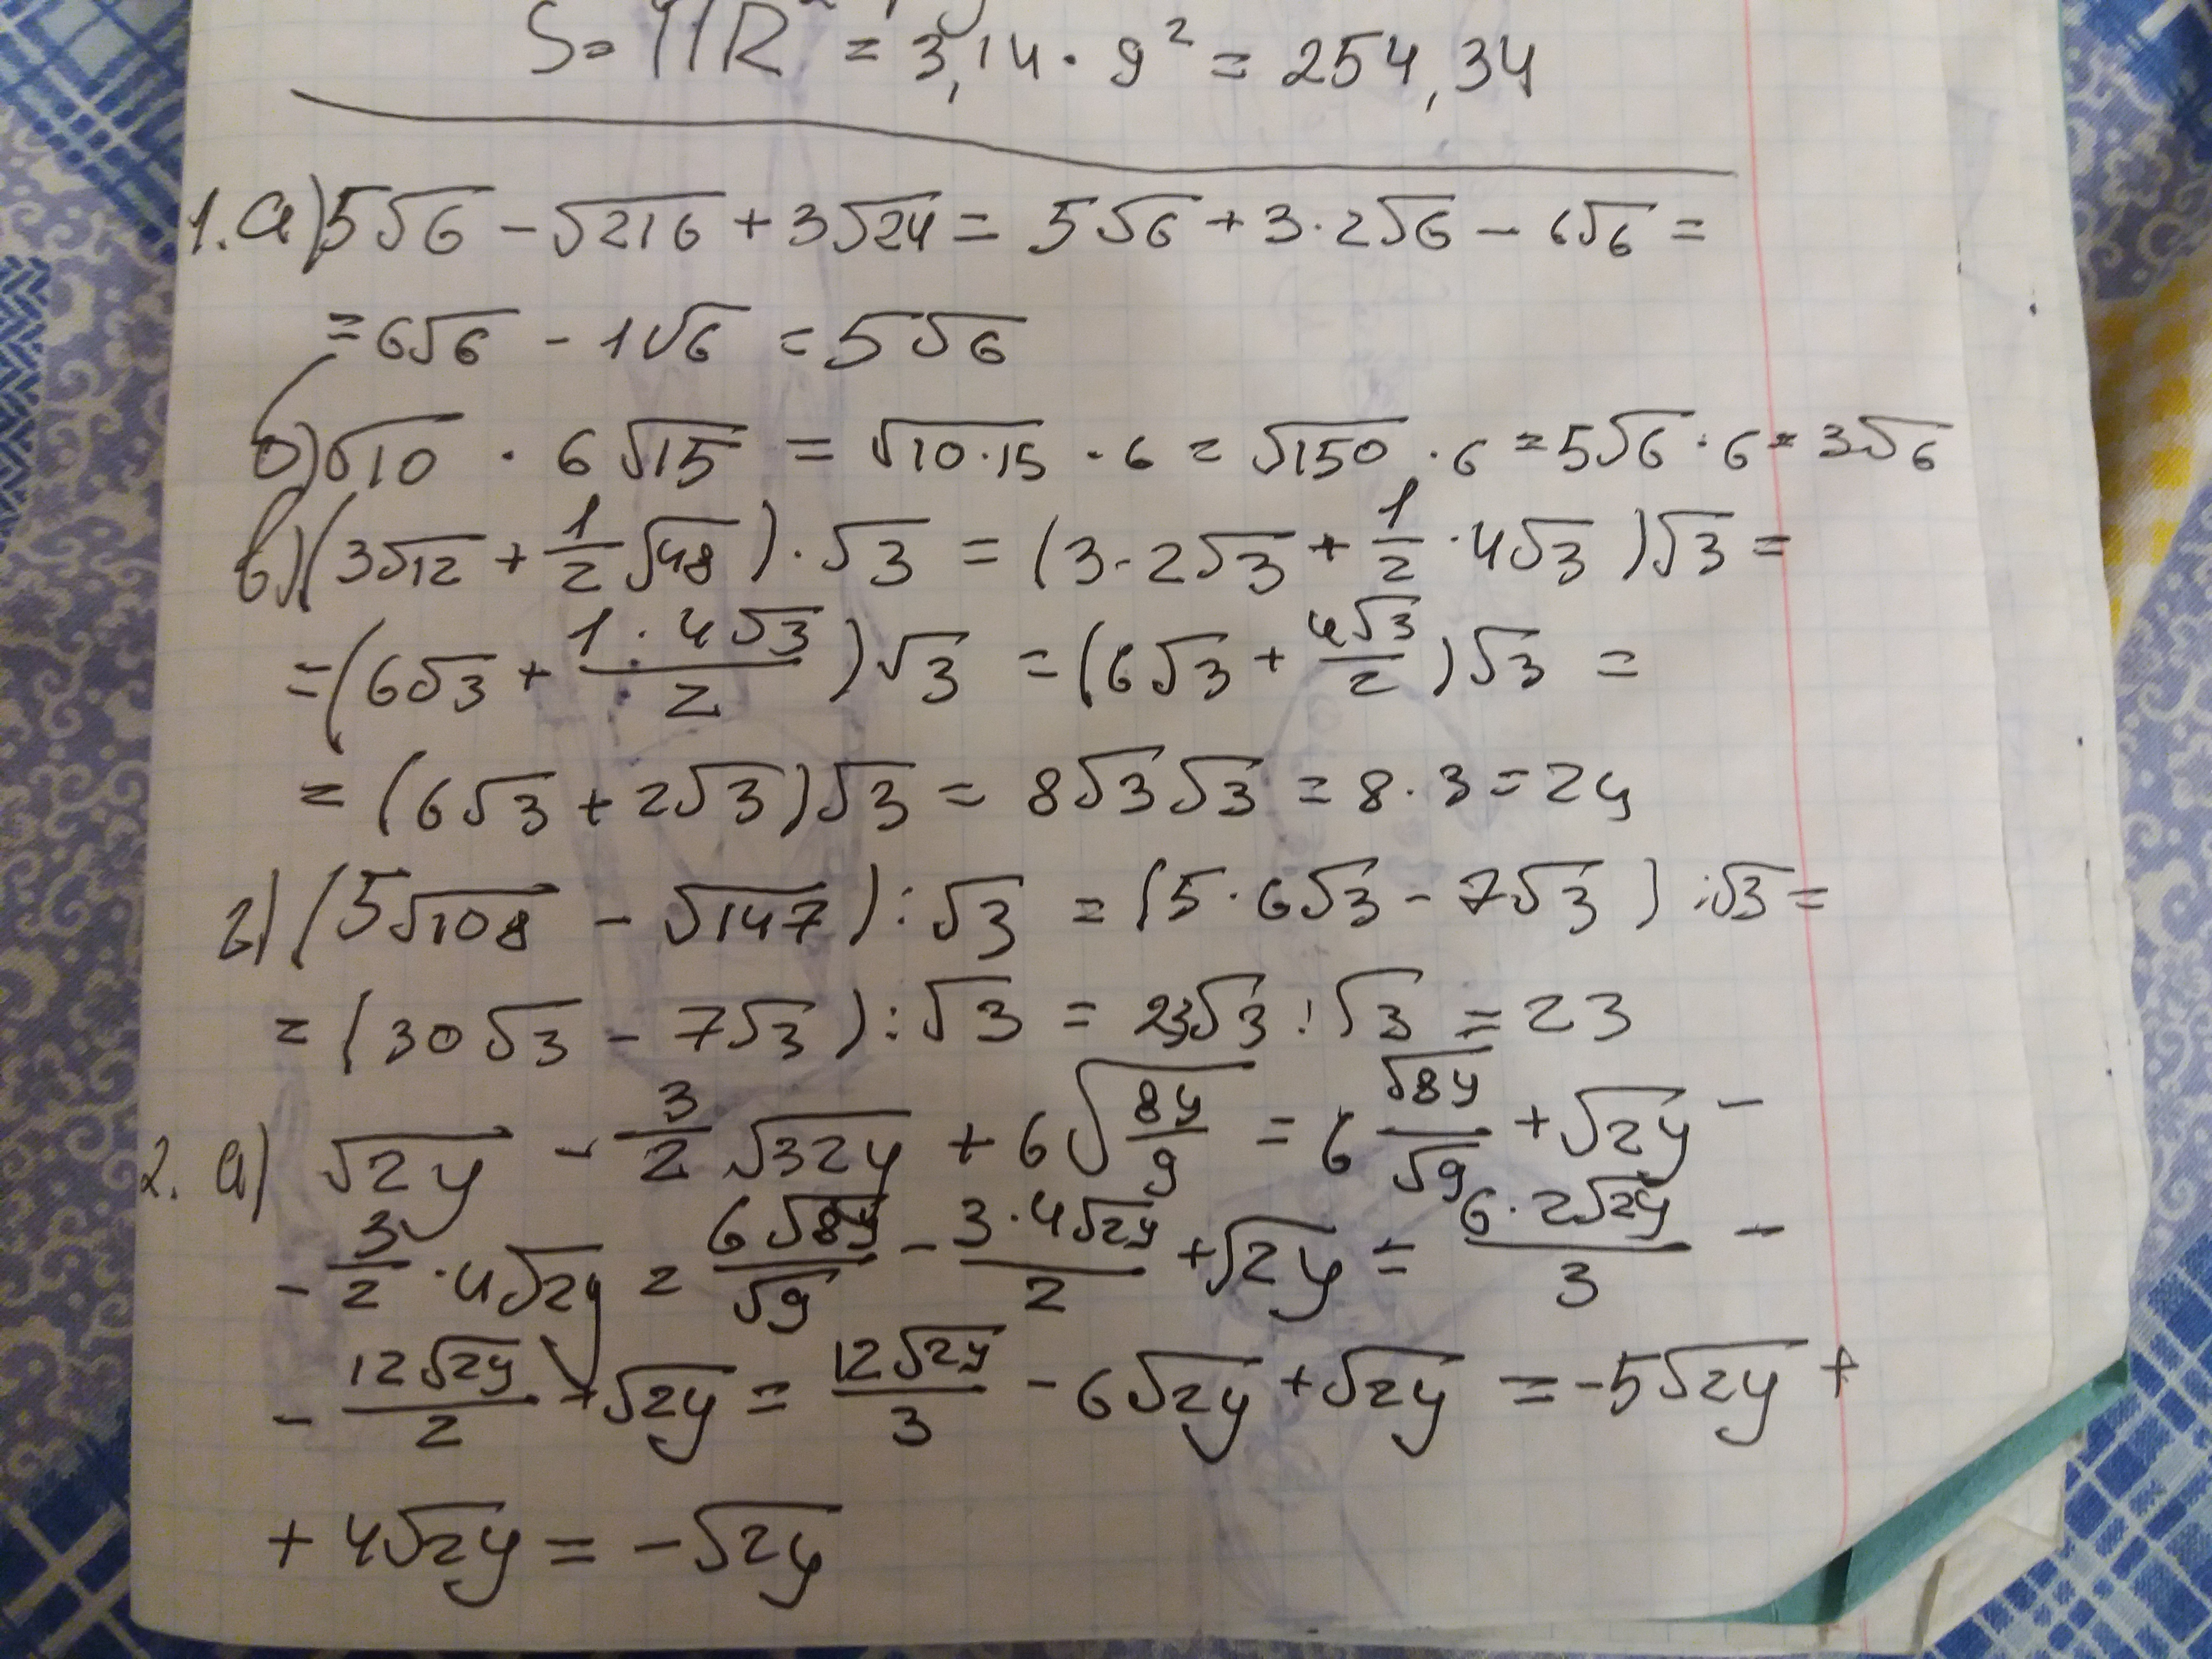 S = ПR² = 3,14 · 9² = 254,34
1. а) 5√6 - √216 + 3√24 = 5√6 + 3·2√6 - 6√6 =
= 6√6 - 1√6 = 5√6
б) √10 · 6√15 = √10·15 · 6 = √150 · 6 = 5√6 · 6 = 3√6
в) (3√12 + 1/2 √48) · √3 = (3·2√3 + 1/2 · 4√3)√3 =
= (6√3 + 1·4√3/2)√3 = (6√3 + 4√3/2)√3 =
= (6√3 + 2√3)√3 = 8√3√3 = 8·3 = 24
г) (5√108 - √147) : √3 = (5·6√3 - 7√3) : √3 =
= (30√3 - 7√3) : √3 = 23√3 : √3 = 23
2. а) √2y - 3/2 √32y + 6√8y/9 = 6 √8y/√9 + √2y -
- 3/2 · 4√2y = 6√8y/√9 - 3·4√2y/2 + √2y = 6·2√2y/3 -
- 12√2y/2 + √2y = 12√2y/3 - 6√2y + √2y = -5√2y +
+ 4√2y = -√2y